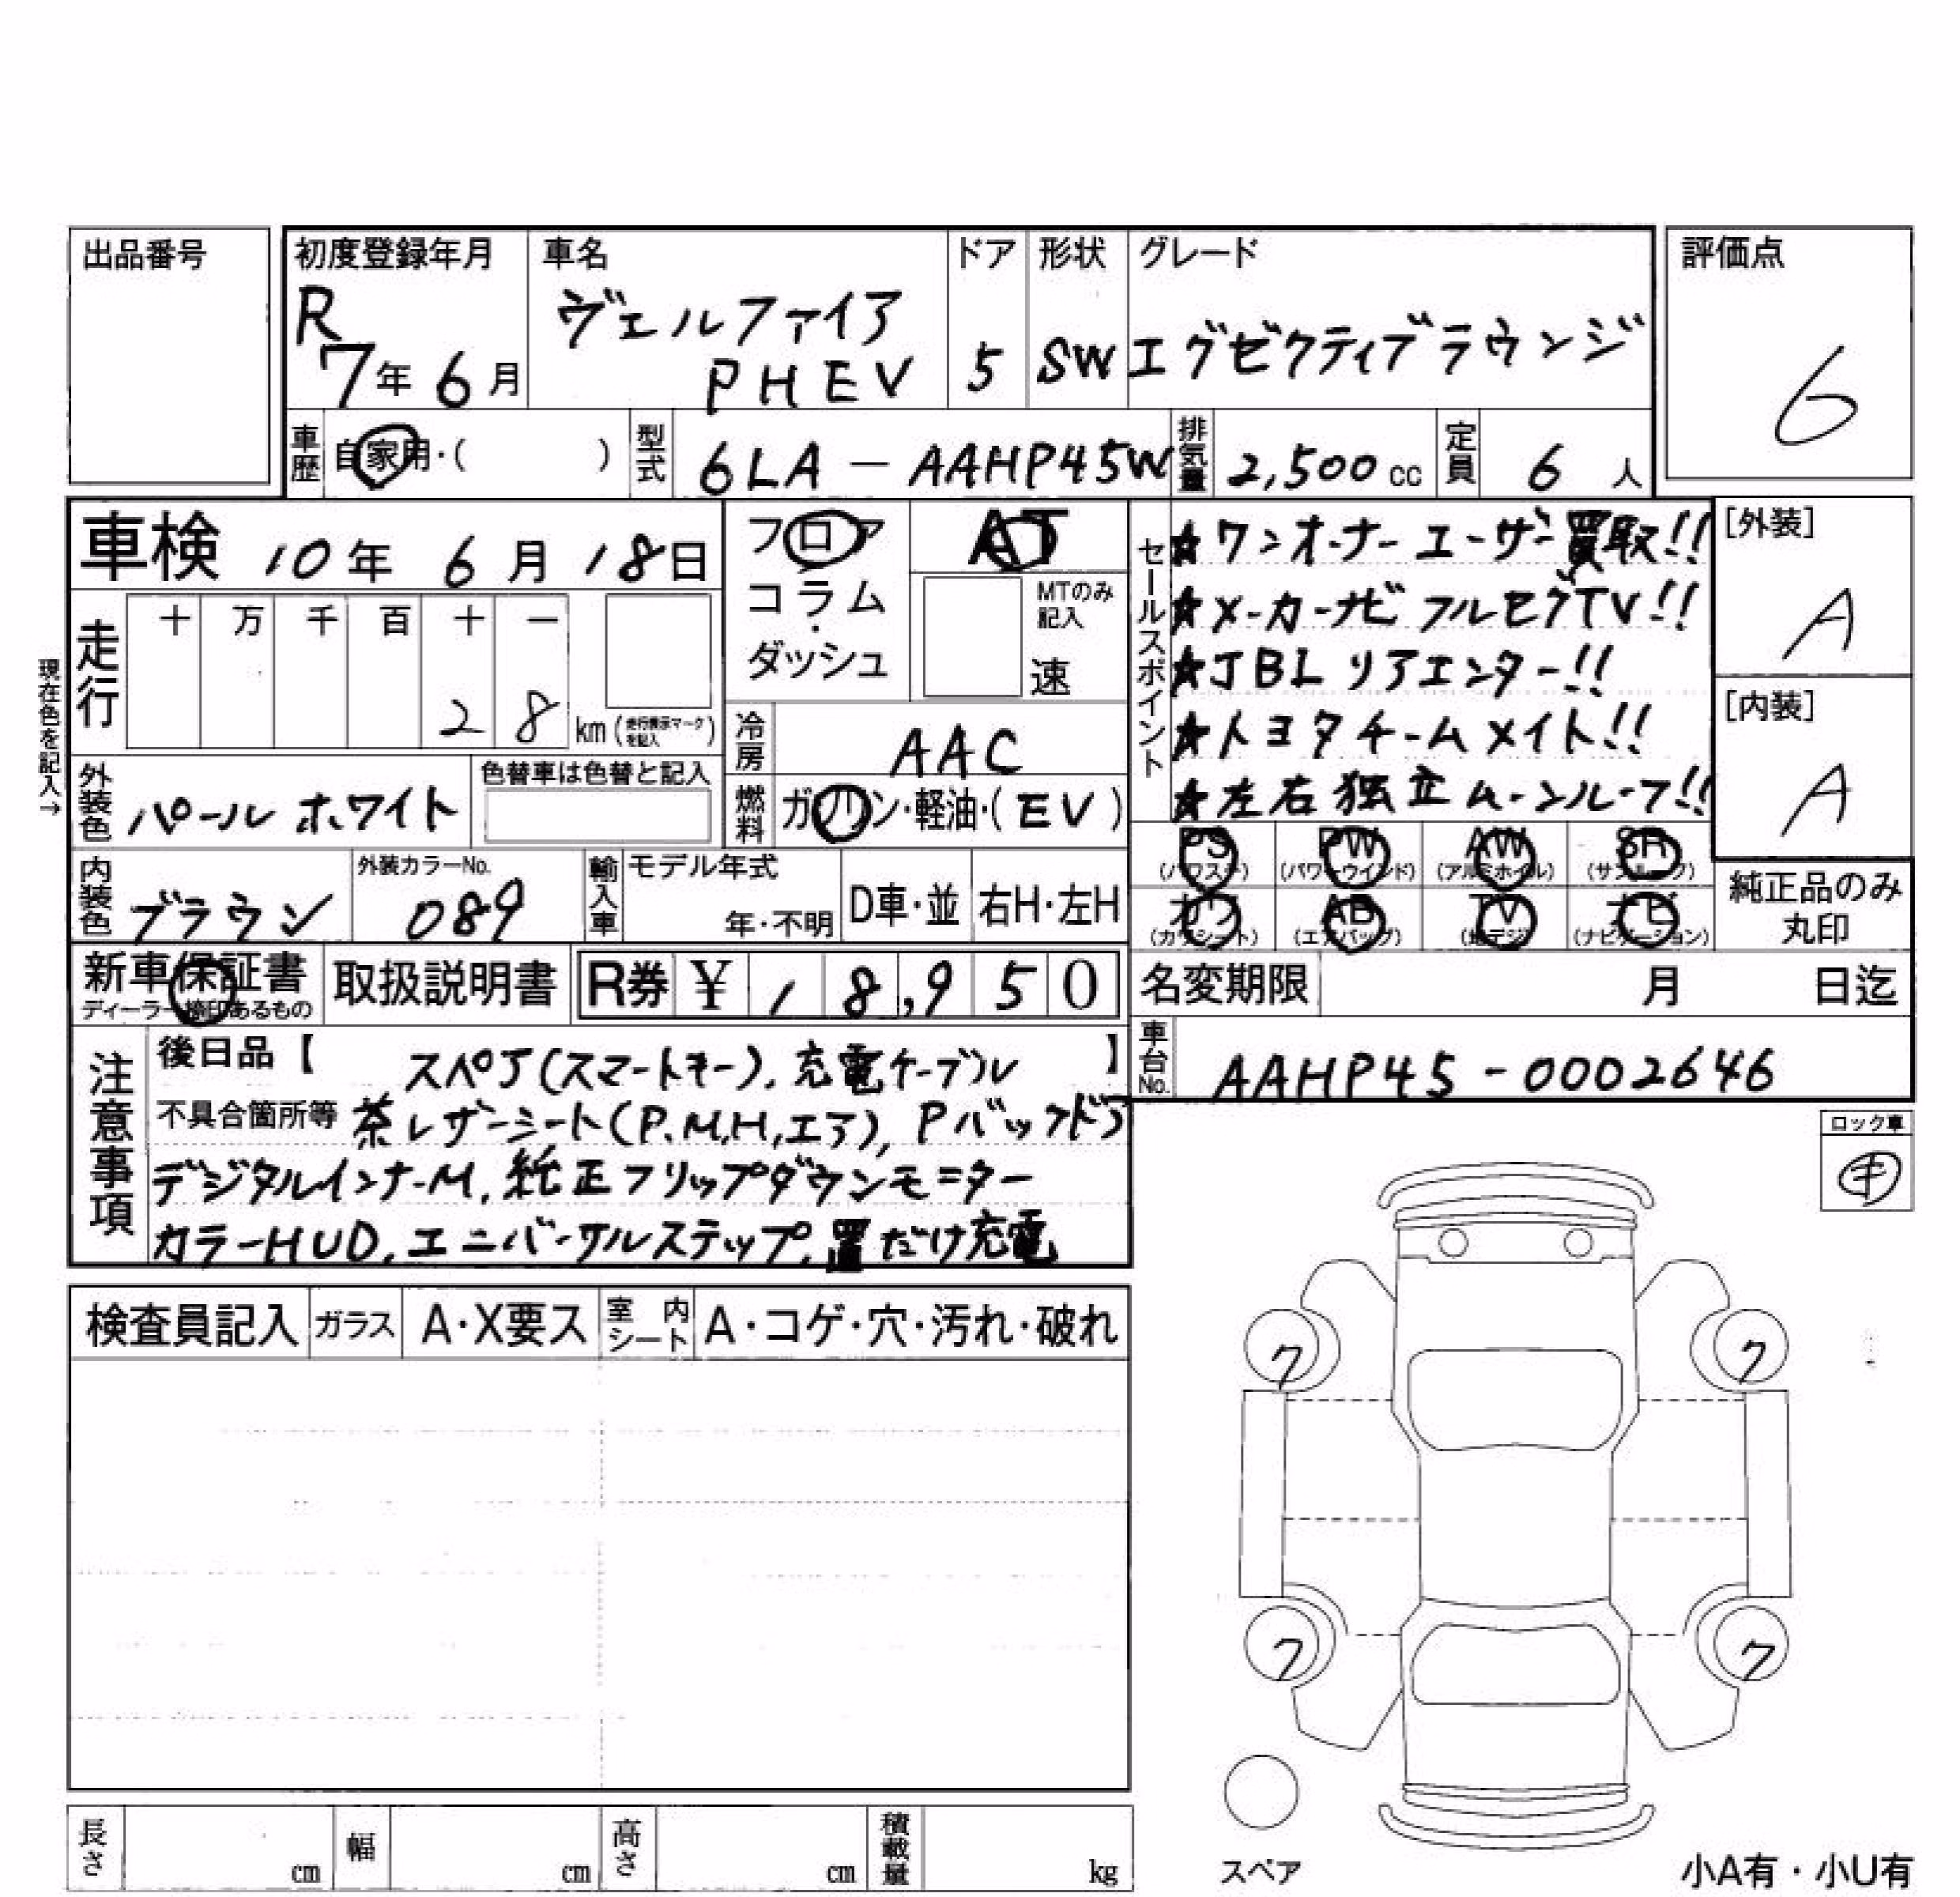 出品番号
初度登録年月 車名 ドア 形状 グレード 評価点
R 7年 6月 ヴェルファイア PHEV 5 SW エグゼクティブラウンジ 6
車歴 自家用・( ) 型式 6LA-AAHP45W 排気量 2,500cc 定員 6人
車検 10年 6月 18日
フロア・コラム・ダッシュ AT
MTのみ記入 速
現在色を記入→
走行 十 万 千 百 十 一
2 8 km (走行表示マークを記入)
冷房 AAC
燃料 ガソリン・軽油・(EV)
外装色 パールホワイト 色替車は色替と記入
内装色 ブラウン 外装カラーNo. 089
輸入車 モデル年式 年・不明 D車・並 右H・左H
セールスポイント
★ワンオーナーユーザー買取!!
★メーカーナビフルセグTV!!
★JBLリアエンター!!
★トヨタチームメイト!!
★左右独立ムーンルーフ!!
[外装] A
[内装] A
PS (パワステ) PW (パワーウインド) AW (アルミホイル) SR (サンルーフ)
カワ (カワシート) AB (エアバッグ) TV (地デジ) ナビ (ナビゲーション)
純正品のみ丸印
新車保証書 ディーラー捺印あるもの 取扱説明書 R券 ¥ 18,950
名変期限 月 日迄
車台No. AAHP45-0002646
注意事項
後日品【 スペア(スマートキー), 充電ケーブル 】
不具合箇所等 茶レザーシート(P,M,H,エア), Pバックドア
デジタルインナーM, 純正フリップダウンモニター
カラーHUD, ユニバーサルステップ, 置だけ充電
ロック車
キ
検査員記入 ガラス A・X要ス 室内シート A・コゲ・穴・汚れ・破れ
ク ク
ク ク
スペア
長さ cm 幅 cm 高さ cm 積載量 kg
小A有・小U有